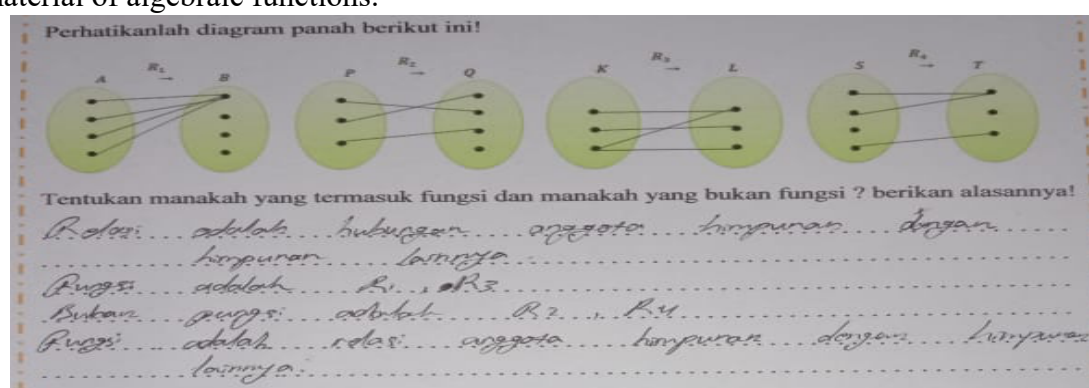 material of algebraic functions.
Perhatikanlah diagram panah berikut ini!
A R₁ → B P R₂ → Q K R₃ → L S R₄ → T
Tentukan manakah yang termasuk fungsi dan manakah yang bukan fungsi ? berikan alasannya!
Relasi adalah hubungan anggota himpunan dengan
himpunan lainnya.
Fungsi adalah R₁, R3
Bukan fungsi adalah R2, R4
Fungsi adalah relasi anggota himpunan dengan himpunan
lainnya.